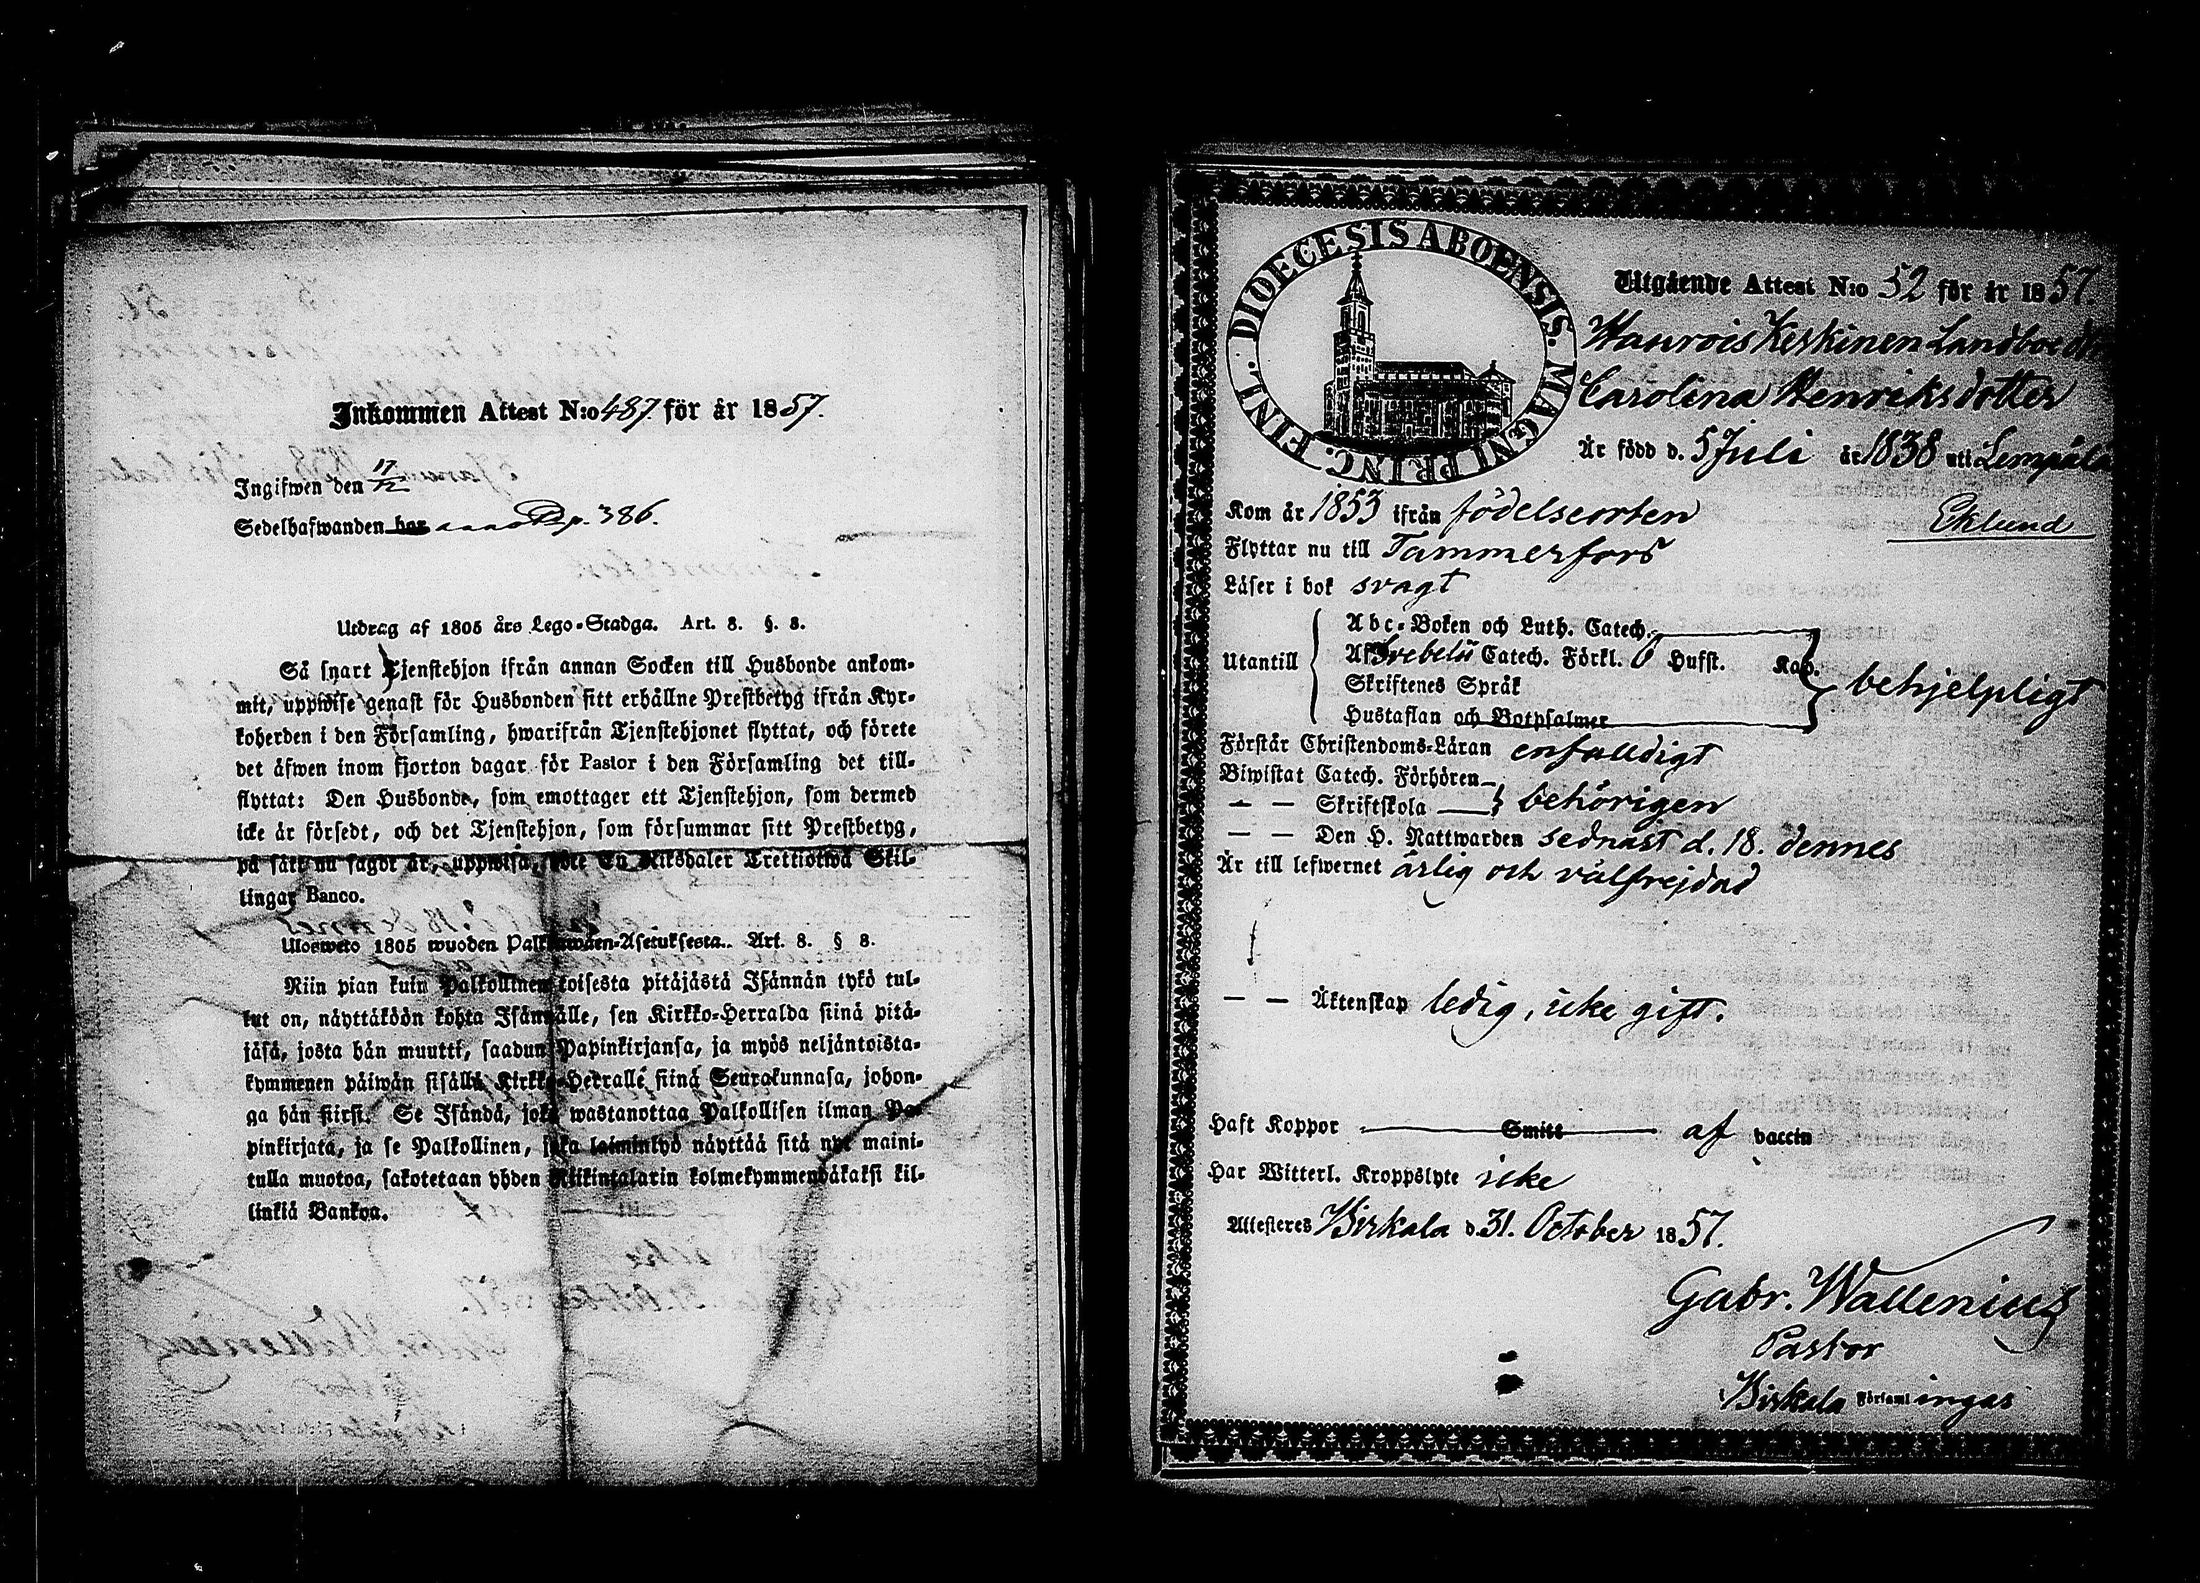 Inkommen Attest N:o 487. för år 1857.
Ingifwen den 17/12
Sedelhafwanden har p. 386.
Utdrag af 1805 års Lego-Stadga. Art. 8. §. 8.
Så snart Tjenstehjon ifrån annan Socken till Husbonde ankom-
mit, uppwise genast för Husbonden sitt erhållne Prestbetyg ifrån Kyr-
koherden i den Församling, hwarifrån Tjenstehjonet flyttat, och förete
det äfwen inom fjorton dagar för Pastor i den Församling det till-
flyttat: Den Husbonde, som emottager ett Tjenstehjon, som dermed
icke är försedt, och det Tjenstehjon, som försummar sitt Prestbetyg,
på sätt nu sagdt är, uppwisa, böte En Riksdaler Trettiotwå Skil-
lingar Banco.
Ulosweto 1805 wuoden Palkkawäen-Asetuksesta. Art. 8. § 8.
Niin pian kuin Palkollinen toisesta pitäjästä Isännän tykö tul-
lut on, näyttäköön kohta Isännälle, sen Kirkko-Herralda siinä pitä-
jäsä, josta hän muutti, saadun Papinkirjansa, ja myös neljäntoista-
kymmenen päiwän sisällä Kirkko-Herralle siinä Seurakunnasa, johon-
ga hän siirsi. Se Isändä, joka wastanottaa Palkollisen ilman Pa-
pinkirjata, ja se Palkollinen, joka laiminlyö näyttää sitä nyt maini-
tulla muotoa, sakotetaan yhden Riikintalarin kolmekymmendäkaksi kil-
linkiä Bankoa.
DIOECESIS ABOENSIS. MAGNI PRINC. FINL.
Utgående Attest N:o 52 för år 1857.
Keskinen Landboed
Carolina Henriksdotter
Är född d. 5 Juli år 1838 uti Lempäla
Kom år 1853 ifrån födelseorten
Eklund
Flyttar nu till Tammerfors
Läser i bok svagt
Utantill
Abc-Boken och Luth. Catech.
Af Svebelii Catech. Förkl. Hufst. Kap.
Skriftenes Språk
Hustaflan och Botpsalmer
behjelpligt
Förstår Christendoms-Läran enfalldigt
Biwistat Catech. Förhören
— — Skriftskola
behörigen
— — Den H. Nattwarden sednast d. 18. dennes
Är till lefwernet ärlig och välfrejdad
— — Äktenskap ledig, icke gift.
Haft Koppor Smitt af vaccin
Har Witterl. Kroppslyte icke
Attesteres Birkala d. 31. October 1857.
Gabr. Wallenius
Pastor
Birkala Församl ingas